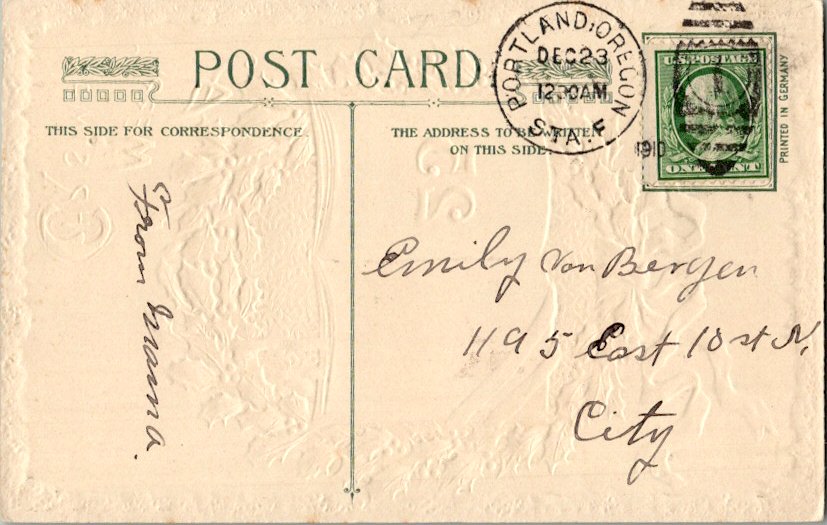 POST CARD
THIS SIDE FOR CORRESPONDENCE
THE ADDRESS TO BE WRITTEN
ON THIS SIDE.
PORTLAND, OREGON
DEC 23
12 30 AM
1910
STA. F
U.S. POSTAGE
ONE CENT
PRINTED IN GERMANY
From Mama.
Emily Von Bergen
1195 East 10 st N.
City